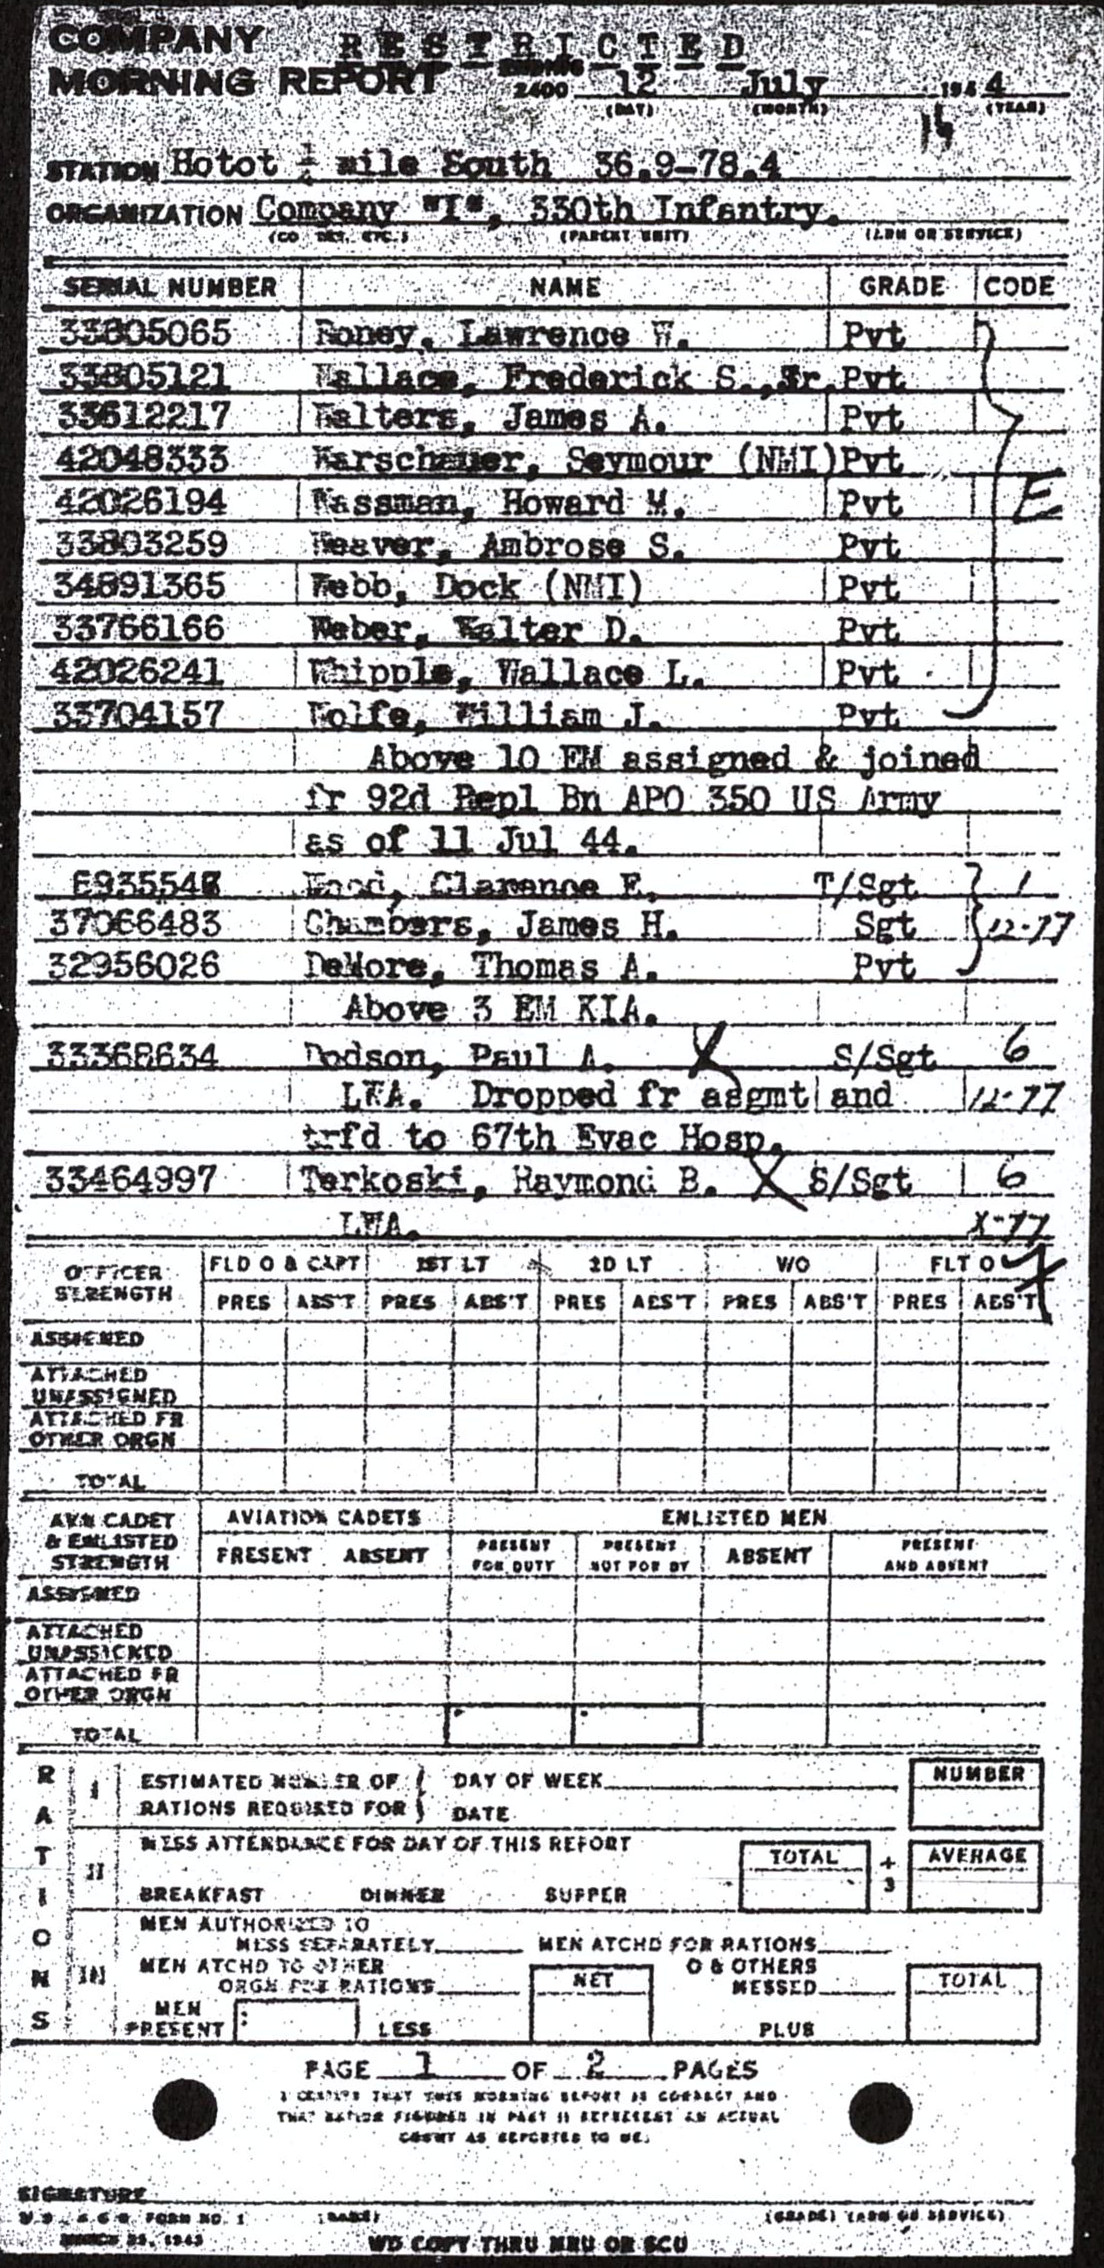 COMPANY RESTRICTED
MORNING REPORT ENDING
2400 12 July 194 4
(DAY) (MONTH) (YEAR)
STATION Hotot ¼ mile South 36.9-78.4
ORGANIZATION Company "I", 330th Infantry.
(CO DET, ETC.) (PARENT UNIT) (ARM OR SERVICE)
SERIAL NUMBER NAME GRADE CODE
33805065 Roney, Lawrence W. Pvt
33805121 Wallace, Frederick S., Jr. Pvt
33612217 Walters, James A. Pvt
42048333 Warschauer, Seymour (NMI) Pvt
42026194 Wassman, Howard M. Pvt E
33803259 Weaver, Ambrose S. Pvt
34891365 Webb, Dock (NMI) Pvt
33766166 Weber, Walter D. Pvt
42026241 Whipple, Wallace L. Pvt
33704157 Wolfe, William J. Pvt
Above 10 EM assigned & joined
fr 92d Repl Bn APO 350 US Army
as of 11 Jul 44.
Wood, Clarence E. T/Sgt 1
37066483 Chambers, James H. Sgt 12-77
32956026 DeMore, Thomas A. Pvt
Above 3 EM KIA.
33368634 Dodson, Paul A. X S/Sgt 6
LWA. Dropped fr asgmt and 12-77
trfd to 67th Evac Hosp.
33464997 Terkoski, Raymond B. X S/Sgt 6
LWA. X-77
OFFICER STRENGTH FLD O & CAPT 1ST LT 2D LT W O FLT O
PRES ABS'T PRES ABS'T PRES ABS'T PRES ABS'T PRES ABS'T
ASSIGNED
ATTACHED
UNASSIGNED
ATTACHED FR
OTHER ORGN
TOTAL
AVN CADET & ENLISTED STRENGTH AVIATION CADETS ENLISTED MEN
PRESENT ABSENT PRESENT FOR DUTY PRESENT NOT FOR DY ABSENT PRESENT AND ABSENT
ASSIGNED
ATTACHED
UNASSIGNED
ATTACHED FR
OTHER ORGN
TOTAL
RATIONS
I ESTIMATED NUMBER OF DAY OF WEEK NUMBER
RATIONS REQUIRED FOR DATE
II MESS ATTENDANCE FOR DAY OF THIS REPORT TOTAL ÷ 3 AVERAGE
BREAKFAST DINNER SUPPER
III MEN AUTHORIZED TO
MESS SEPARATELY MEN ATCHD FOR RATIONS
MEN ATCHD TO OTHER O & OTHERS
ORGN FOR RATIONS NET MESSED TOTAL
MEN
PRESENT LESS PLUS
PAGE 1 OF 2 PAGES
I CERTIFY THAT THIS MORNING REPORT IS CORRECT AND
THAT RATION FIGURES IN PART II REPRESENT AN ACTUAL
COUNT AS REPORTED TO ME.
SIGNATURE
FORM NO. 1 (NAME) (GRADE) (ARM OR SERVICE)
MARCH 25, 1943 WD COPY THRU MRU OR SCU